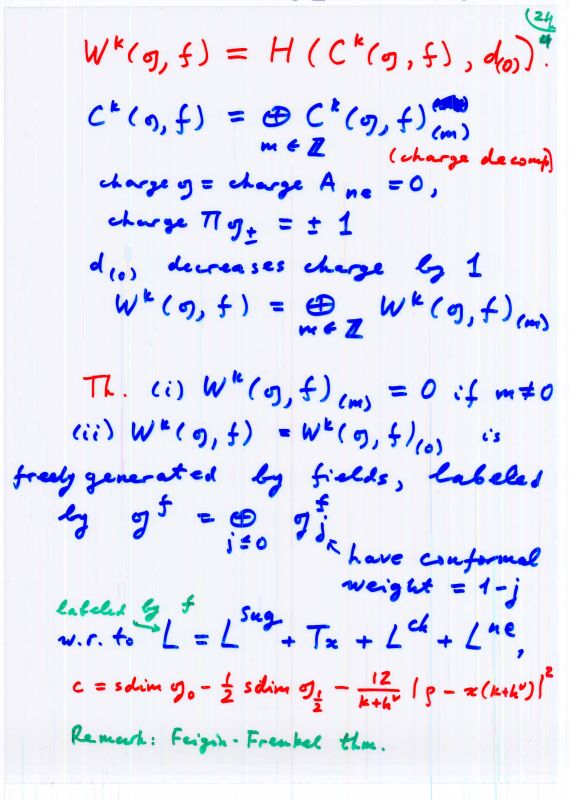 24
4
W^k(𝔤, f) = H(C^k(𝔤, f), d_(0)).
C^k(𝔤, f) = ⊕_{m∈ℤ} C^k(𝔤, f)_(m)
(charge decomp)
charge 𝔤 = charge A_ne = 0,
charge Π𝔤_± = ± 1
d_(0) decreases charge by 1
W^k(𝔤, f) = ⊕_{m∈ℤ} W^k(𝔤, f)_(m)
Th. (i) W^k(𝔤, f)_(m) = 0 if m≠0
(ii) W^k(𝔤, f) = W^k(𝔤, f)_(0) is
freely generated by fields, labeled
by 𝔤^f = ⊕_{j≤0} 𝔤^f_j
have conformal
weight = 1-j
labeled by f
w.r. to L = L^sug + Tx + L^ch + L^ne,
c = sdim 𝔤_0 - 1/2 sdim 𝔤_{1/2} - 12/(k+h^∨) |ρ - x(k+h^∨)|^2
Remark: Feigin-Frenkel thm.